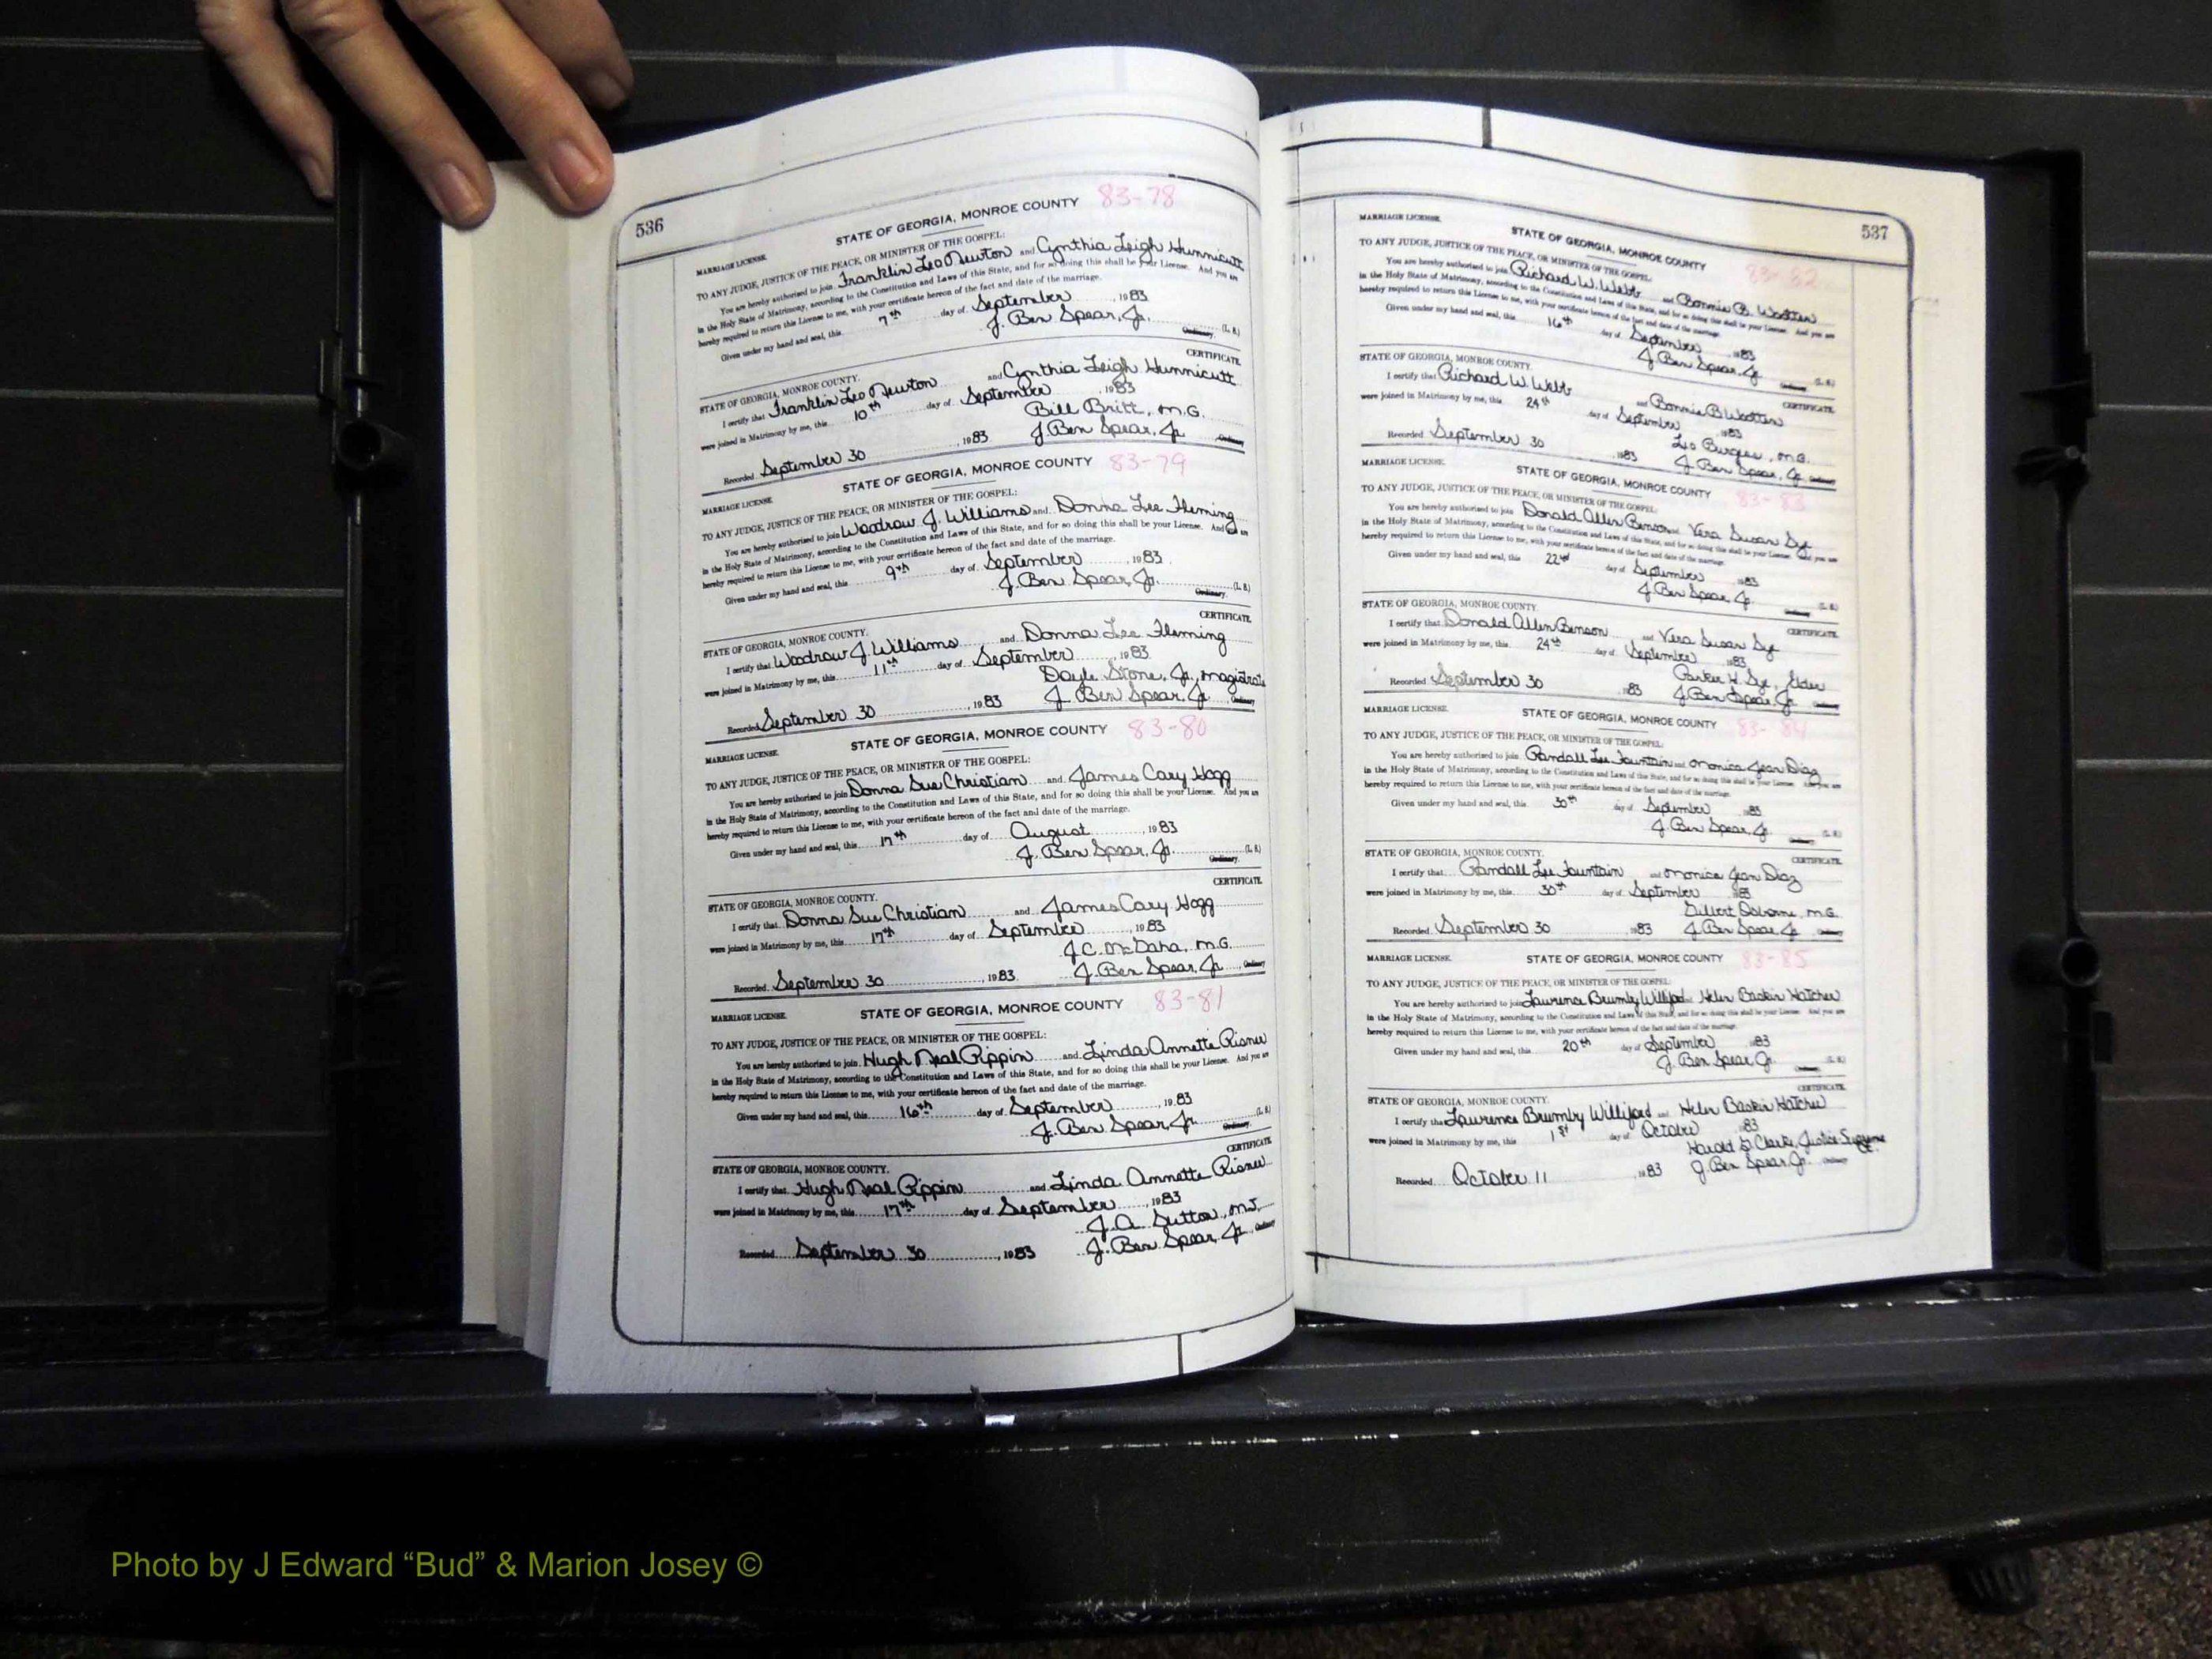 536
STATE OF GEORGIA, MONROE COUNTY 83-78
MARRIAGE LICENSE.
TO ANY JUDGE, JUSTICE OF THE PEACE, OR MINISTER OF THE GOSPEL:
You are hereby authorized to join Franklin Leo Newton and Cynthia Leigh Hunnicutt
in the Holy State of Matrimony, according to the Constitution and Laws of this State, and for so doing this shall be your License. And you are
hereby required to return this License to me, with your certificate hereon of the fact and date of the marriage.
Given under my hand and seal, this 7th day of September, 1983
J. Ben Spear, Jr. (L. S.)
Ordinary.
CERTIFICATE
STATE OF GEORGIA, MONROE COUNTY.
I certify that Franklin Leo Newton and Cynthia Leigh Hunnicutt
were joined in Matrimony by me, this 10th day of September, 1983
Bill Britt, M.G.
Recorded September 30, 1983 J. Ben Spear, Jr. Ordinary
STATE OF GEORGIA, MONROE COUNTY 83-79
MARRIAGE LICENSE.
TO ANY JUDGE, JUSTICE OF THE PEACE, OR MINISTER OF THE GOSPEL:
You are hereby authorized to join Woodrow J. Williams and Donna Lee Fleming
in the Holy State of Matrimony, according to the Constitution and Laws of this State, and for so doing this shall be your License. And you are
hereby required to return this License to me, with your certificate hereon of the fact and date of the marriage.
Given under my hand and seal, this 9th day of September, 1983
J. Ben Spear, Jr. (L. S.)
Ordinary.
CERTIFICATE
STATE OF GEORGIA, MONROE COUNTY.
I certify that Woodrow J. Williams and Donna Lee Fleming
were joined in Matrimony by me, this 11th day of September, 1983
Doyle Stone, Jr., Magistrate
Recorded September 30, 1983 J. Ben Spear, Jr., Ordinary
STATE OF GEORGIA, MONROE COUNTY 83-80
MARRIAGE LICENSE.
TO ANY JUDGE, JUSTICE OF THE PEACE, OR MINISTER OF THE GOSPEL:
You are hereby authorized to join Donna Sue Christian and James Cary Hogg
in the Holy State of Matrimony, according to the Constitution and Laws of this State, and for so doing this shall be your License. And you are
hereby required to return this License to me, with your certificate hereon of the fact and date of the marriage.
Given under my hand and seal, this 17th day of August, 1983
J. Ben Spear, Jr. (L. S.)
Ordinary.
CERTIFICATE
STATE OF GEORGIA, MONROE COUNTY.
I certify that Donna Sue Christian and James Cary Hogg
were joined in Matrimony by me, this 17th day of September, 1983
J.C. McDaha, M.G.
Recorded September 30, 1983 J. Ben Spear, Jr., Ordinary
STATE OF GEORGIA, MONROE COUNTY 83-81
MARRIAGE LICENSE.
TO ANY JUDGE, JUSTICE OF THE PEACE, OR MINISTER OF THE GOSPEL:
You are hereby authorized to join Hugh Neal Pippin and Linda Annette Risner
in the Holy State of Matrimony, according to the Constitution and Laws of this State, and for so doing this shall be your License. And you are
hereby required to return this License to me, with your certificate hereon of the fact and date of the marriage.
Given under my hand and seal, this 16th day of September, 1983
J. Ben Spear, Jr. (L. S.)
Ordinary.
CERTIFICATE
STATE OF GEORGIA, MONROE COUNTY.
I certify that Hugh Neal Pippin and Linda Annette Risner
were joined in Matrimony by me, this 17th day of September, 1983
J.A. Sutton, M.J.
Recorded September 30, 1983 J. Ben Spear, Jr., Ordinary
537
MARRIAGE LICENSE. STATE OF GEORGIA, MONROE COUNTY 83-82
TO ANY JUDGE, JUSTICE OF THE PEACE, OR MINISTER OF THE GOSPEL:
You are hereby authorized to join Richard W. Webb and Bonnie B. Wootten
in the Holy State of Matrimony, according to the Constitution and Laws of this State, and for so doing this shall be your License. And you are
hereby required to return this License to me, with your certificate hereon of the fact and date of the marriage.
Given under my hand and seal, this 16th day of September 1983
J. Ben Spear, Jr. (L. S.)
Ordinary.
STATE OF GEORGIA, MONROE COUNTY. CERTIFICATE
I certify that Richard W. Webb and Bonnie B Wootten
were joined in Matrimony by me, this 24th day of September 1983
Leo Burgess, M.G.
Recorded September 30, 1983 J. Ben Spear, Jr. Ordinary
MARRIAGE LICENSE. STATE OF GEORGIA, MONROE COUNTY 83-83
TO ANY JUDGE, JUSTICE OF THE PEACE, OR MINISTER OF THE GOSPEL:
You are hereby authorized to join Donald Allen Benson and Vera Susan Sye
in the Holy State of Matrimony, according to the Constitution and Laws of this State, and for so doing this shall be your License. And you are
hereby required to return this License to me, with your certificate hereon of the fact and date of the marriage.
Given under my hand and seal, this 22nd day of September 1983
J. Ben Spear, Jr. (L. S.)
Ordinary.
STATE OF GEORGIA, MONROE COUNTY. CERTIFICATE
I certify that Donald Allen Benson and Vera Susan Sye
were joined in Matrimony by me, this 24th day of September 1983
Parker H. Sye, Elder
Recorded September 30, 1983 J. Ben Spear, Jr. Ordinary
MARRIAGE LICENSE. STATE OF GEORGIA, MONROE COUNTY 83-84
TO ANY JUDGE, JUSTICE OF THE PEACE, OR MINISTER OF THE GOSPEL:
You are hereby authorized to join Randall Lee Fountain and Monica Jean Diaz
in the Holy State of Matrimony, according to the Constitution and Laws of this State, and for so doing this shall be your License. And you are
hereby required to return this License to me, with your certificate hereon of the fact and date of the marriage.
Given under my hand and seal, this 30th day of September 1983
J. Ben Spear, Jr. (L. S.)
Ordinary.
STATE OF GEORGIA, MONROE COUNTY. CERTIFICATE
I certify that Randall Lee Fountain and Monica Jean Diaz
were joined in Matrimony by me, this 30th day of September 1983
Gilbert Osborne, M.G.
Recorded September 30, 1983 J. Ben Spear, Jr. Ordinary
MARRIAGE LICENSE. STATE OF GEORGIA, MONROE COUNTY 83-85
TO ANY JUDGE, JUSTICE OF THE PEACE, OR MINISTER OF THE GOSPEL:
You are hereby authorized to join Lawrence Brumby Williford Helen Baskin Hatcher
in the Holy State of Matrimony, according to the Constitution and Laws of this State, and for so doing this shall be your License. And you are
hereby required to return this License to me, with your certificate hereon of the fact and date of the marriage.
Given under my hand and seal, this 20th day of September 1983
J. Ben Spear, Jr. (L. S.)
Ordinary.
CERTIFICATE
STATE OF GEORGIA, MONROE COUNTY.
I certify that Lawrence Brumby Williford and Helen Baskin Hatcher
were joined in Matrimony by me, this 1st day of October 1983
Harold G. Clarke, Justice Supreme Ct.
Recorded October 11, 1983 J. Ben Spear, Jr. Ordinary
Photo by J Edward “Bud” & Marion Josey ©